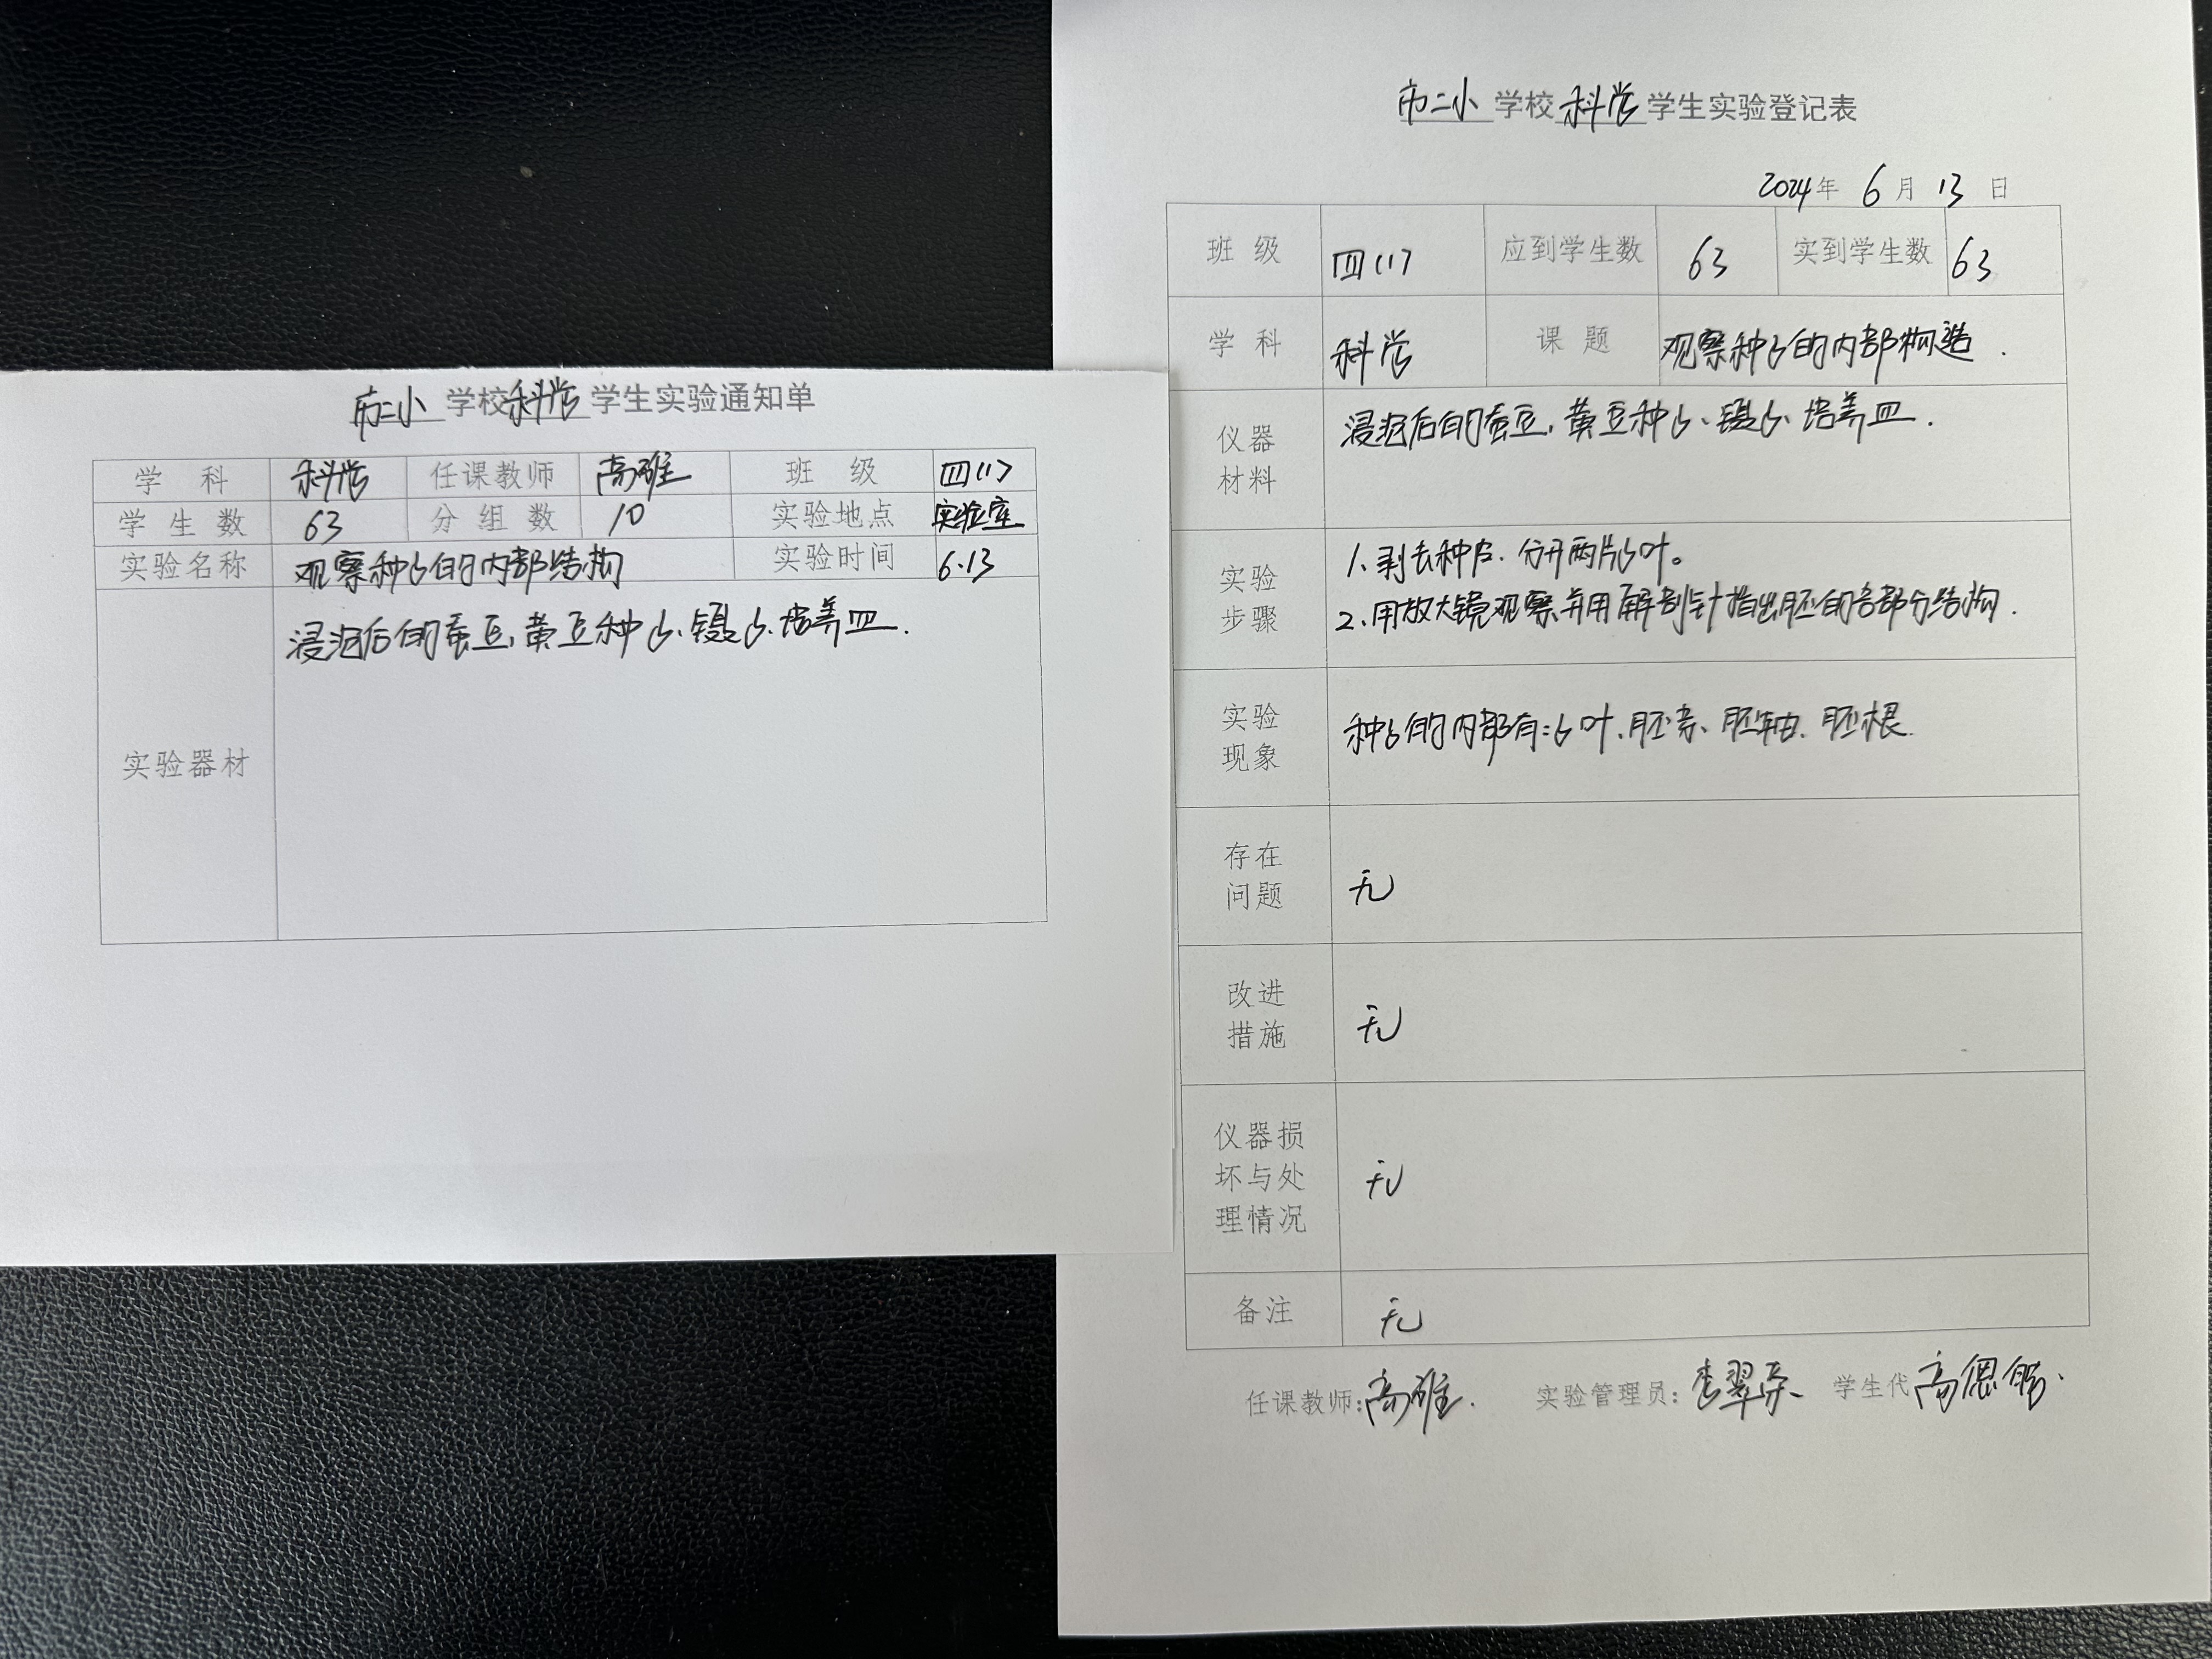 市二小 学校 科学 学生实验通知单
学 科 科学 任课教师 高雅 班 级 四(1)
学 生 数 63 分 组 数 10 实验地点 实验室
实验名称 观察种子的内部结构 实验时间 6.13
实验器材 浸泡后的蚕豆,黄豆种子、镊子、培养皿.
市二小 学校 科学 学生实验登记表
2024年 6月 13日
班 级 四(1) 应到学生数 63 实到学生数 63
学 科 科学 课 题 观察种子的内部构造.
仪器
材料
浸泡后的蚕豆,黄豆种子、镊子、培养皿.
实验
步骤
1.剥去种皮.分开两片子叶。
2.用放大镜观察并用解剖针指出胚的各部分结构.
实验
现象
种子的内部有:子叶、胚芽、胚轴、胚根.
存在
问题
无
改进
措施
无
仪器损
坏与处
理情况
无
备注 无
任课教师:高雅. 实验管理员:李翠 学生代 高